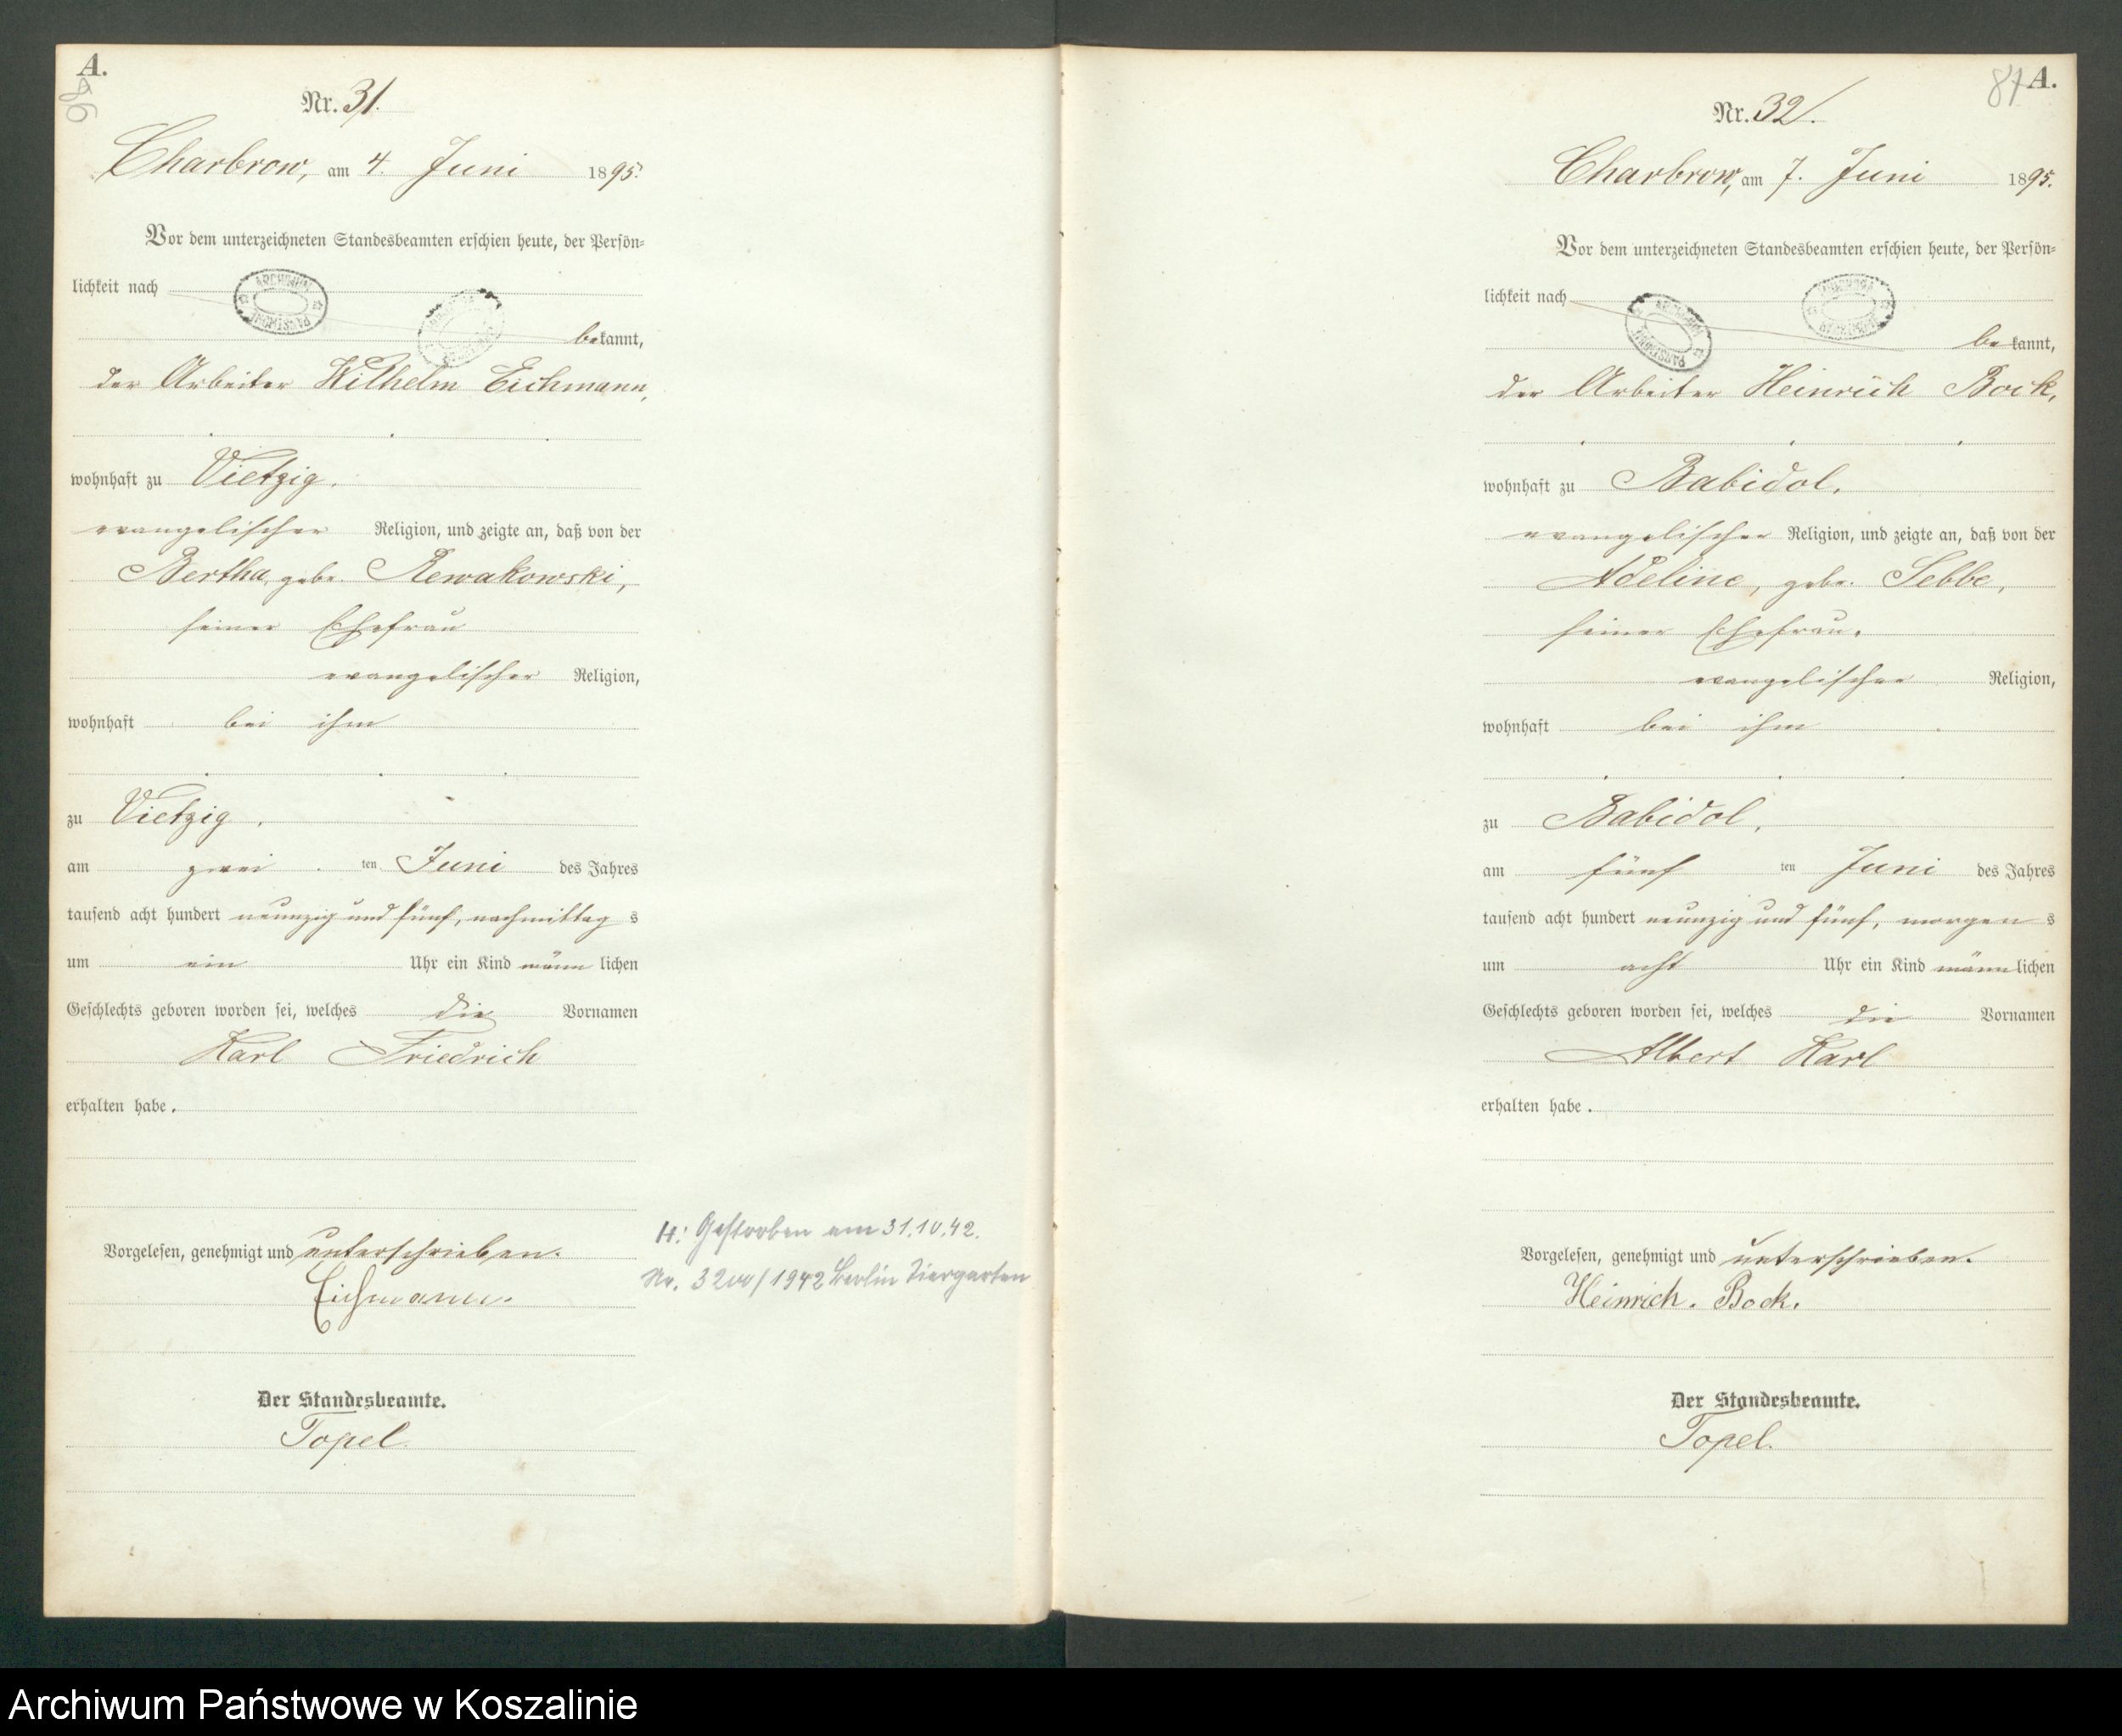 A.
86
Nr. 31.
Charbrow, am 4. Juni 1895.
Vor dem unterzeichneten Standesbeamten erschien heute, der Persön-
lichkeit nach
bekannt,
der Arbeiter Wilhelm Eichmann,
wohnhaft zu Vietzig.
evangelischer Religion, und zeigte an, daß von der
Bertha, geb. Rewakowski,
seiner Ehefrau
evangelischer Religion,
wohnhaft bei ihm
zu Vietzig.
am zwei ten Juni des Jahres
tausend acht hundert neunzig und fünf, nachmittags
um ein Uhr ein Kind männlichen
Geschlechts geboren worden sei, welches die Vornamen
Karl Friedrich
erhalten habe.
Vorgelesen, genehmigt und unterschrieben.
Eichmann.
Der Standesbeamte.
Topel.
H: Gestorben am 31.10.42.
Nr. /1942 Berlin Tiergarten
87 A.
Nr. 32.
Charbrow, am 7. Juni 1895.
Vor dem unterzeichneten Standesbeamten erschien heute, der Persön-
lichkeit nach
bekannt,
der Arbeiter Heinrich Bock,
wohnhaft zu Babidol.
evangelischer Religion, und zeigte an, daß von der
Adeline, geb. Sebbe,
seiner Ehefrau.
evangelischer Religion,
wohnhaft bei ihm
zu Babidol.
am fünf ten Juni des Jahres
tausend acht hundert neunzig und fünf, morgens
um acht Uhr ein Kind männlichen
Geschlechts geboren worden sei, welches die Vornamen
Albert Karl
erhalten habe.
Vorgelesen, genehmigt und unterschrieben.
Heinrich. Bock.
Der Standesbeamte.
Topel.
Archiwum Państwowe w Koszalinie